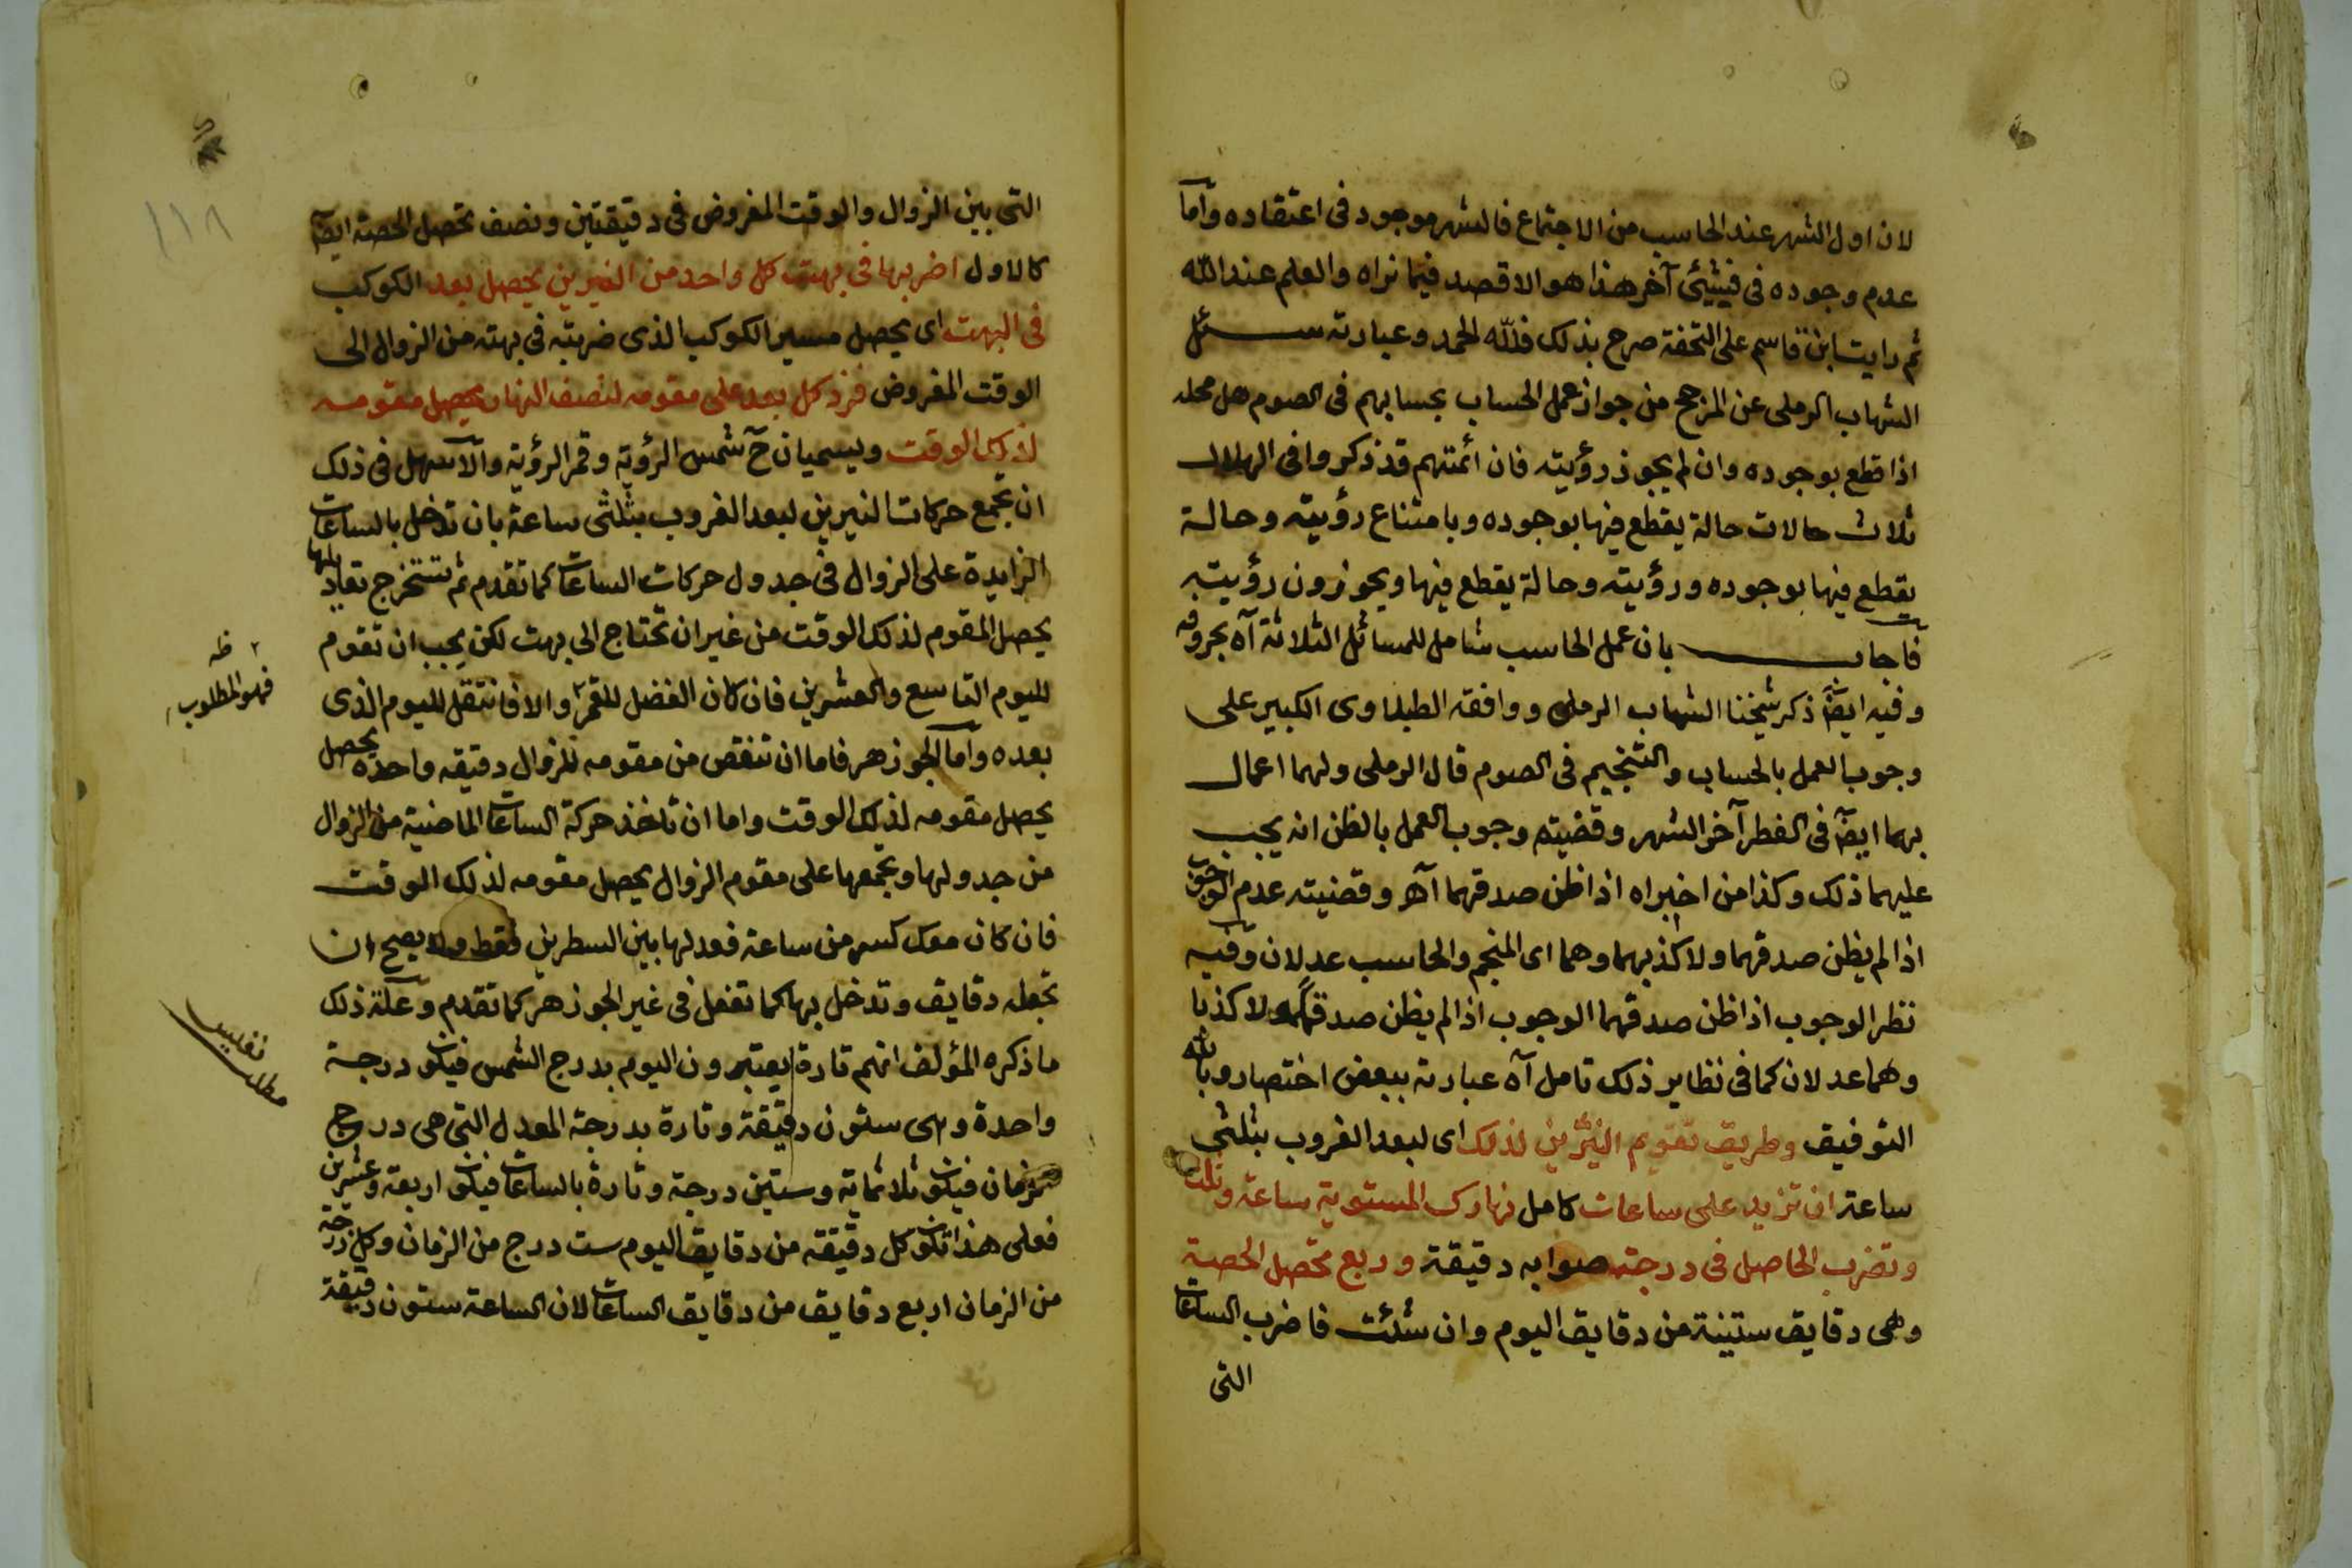 لان اول الشهر عند الحاسب من الاجتماع فالشهر موجود في اعتقاده واما
عدم وجوده في فيشيئ آخر هذا هو الاقصد فيما نراه والعلم عند الله
ثم رايت ابن قاسم على التحفة صرح بذلك فلله الحمد وعبارته سئل
الشهاب الرملي عن المرجح من جواز عمل الحساب بحسابهم في الصوم هل محله
اذا قطع بوجوده وان لم يجوز رؤيته فان ائمتهم قد ذكروا في الهلال
ثلاث حالات حالة يقطع فيها بوجوده وبامتناع رؤيته وحالة
يقطع فيها بوجوده ورؤيته وحالة يقطع فيها ويجوزون رؤيته
فاجاب بان عمل الحاسب شامل للمسائل الثلاثة آه بحروفه
وفيه ايضا ذكر شيخنا الشهاب الرملي ووافقه الطبلاوى الكبير على
وجوب العمل بالحساب والتنجيم في الصوم قال الرملي ولهما اعمال
بهما ايضا في الفطر آخر الشهر وقضيته وجوب العمل بالظن انه يجب
عليهما ذلك وكذا من اخبراه اذا ظن صدقهما آه وقضيته عدم الوجوب
اذا لم يظن صدقهما ولا كذبهما وهما اى المنجم والحاسب عدلان وفيه
نظر الوجوب اذا ظن صدقهما الوجوب اذا لم يظن صدقهما ولا كذبا
وهما عدلان كما في نظاير ذلك تامل آه عبارته ببعض اختصار وبالله
التوفيق وطريق تقويم النيرين لذلك اى لبعد الغروب بثلثي
ساعة ان تزيد على ساعات كامل نهارك المستوية ساعة وثلث
وتضرب الحاصل في درجة صوابه دقيقة وربع تحصل الحصة
وهي دقايق ستينية من دقايق اليوم وان شئت فاضرب الساعات
التى
التى بين الزوال والوقت المفروض في دقيقتين ونصف تحصل الحصة ايضا
كالاول اضربها في بهت كل واحد من النيرين يحصل بعد الكوكب
في البهت اى يحصل مسير الكوكب الذى ضربته في بهته من الزوال الى
الوقت المفروض فزد كل بعد على مقومه لنصف النهار يحصل مقومه
لذلك الوقت ويسميان ح شمس الرؤية وقمر الرؤية والاسهل في ذلك
ان تجمع حركات النيرين لبعد الغروب بثلثي ساعة بان تدخل بالساعات
الزايدة على الزوال في جدول حركات الساعات كما تقدم ثم تستخرج تعاديلها
يحصل المقوم لذلك الوقت من غير ان تحتاج الى بهت لكن يجب ان تقوم
لليوم التاسع والعشرين فان كان الفضل للقمر والا فانتقل لليوم الذى
بعده واما الجوزهر فاما ان تنقص من مقومه للزوال دقيقه واحدة يحصل
يحصل مقومه لذلك الوقت واما ان تاخذ حركة الساعات الماضية من الزوال
من جدولها وتجمعها على مقوم الزوال يحصل مقومه لذلك الوقت
فان كان معك كسر من ساعة فعدلها بين السطرين فقط ولا يصح ان
تجعله دقايق وتدخل بها كما تفعل في غير الجوزهر كما تقدم وعلة ذلك
ما ذكره المؤلف انهم تارة يعتبرون اليوم بدرج الشمس فيكون درجة
واحدة وهى ستون دقيقة وتارة بدرجة المعدل التى هي درج
الزمان فيكون ثلاثماية وستين درجة وتارة بالساعات فيكون اربعة وعشرين
فعلى هذا تكون كل دقيقه من دقايق اليوم ست درج من الزمان وكل درجة
من الزمان اربع دقايق من دقايق الساعات لان الساعة ستون دقيقة
ظه
فهو المطلوب
مطلب نفيس
١١٨